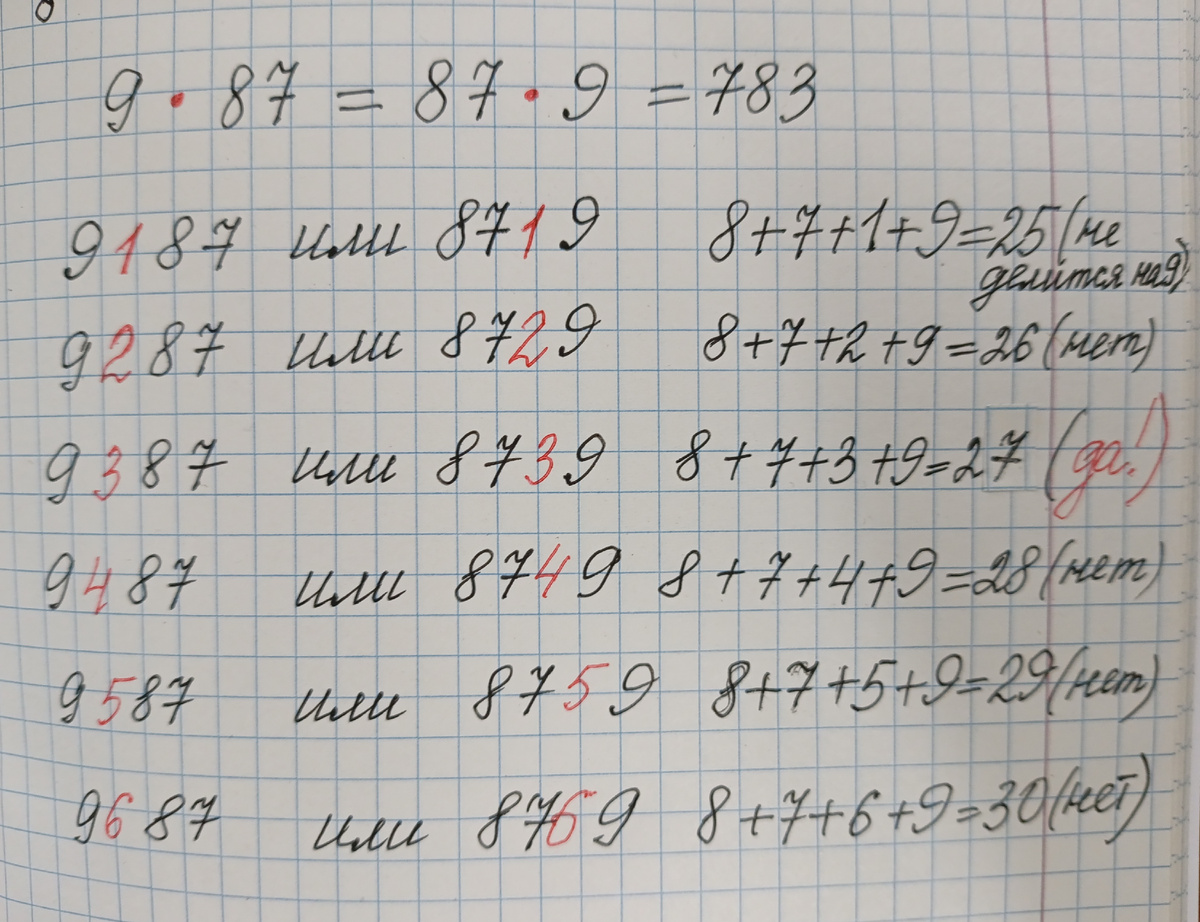 9 · 87 = 87 · 9 = 783
9187 или 8719 8+7+1+9=25(не
делится на 9)
9287 или 8729 8+7+2+9=26(нет)
9387 или 8739 8+7+3+9=27 (да!)
9487 или 8749 8+7+4+9=28(нет)
9587 или 8759 8+7+5+9=29(нет)
9687 или 8769 8+7+6+9=30(нет)